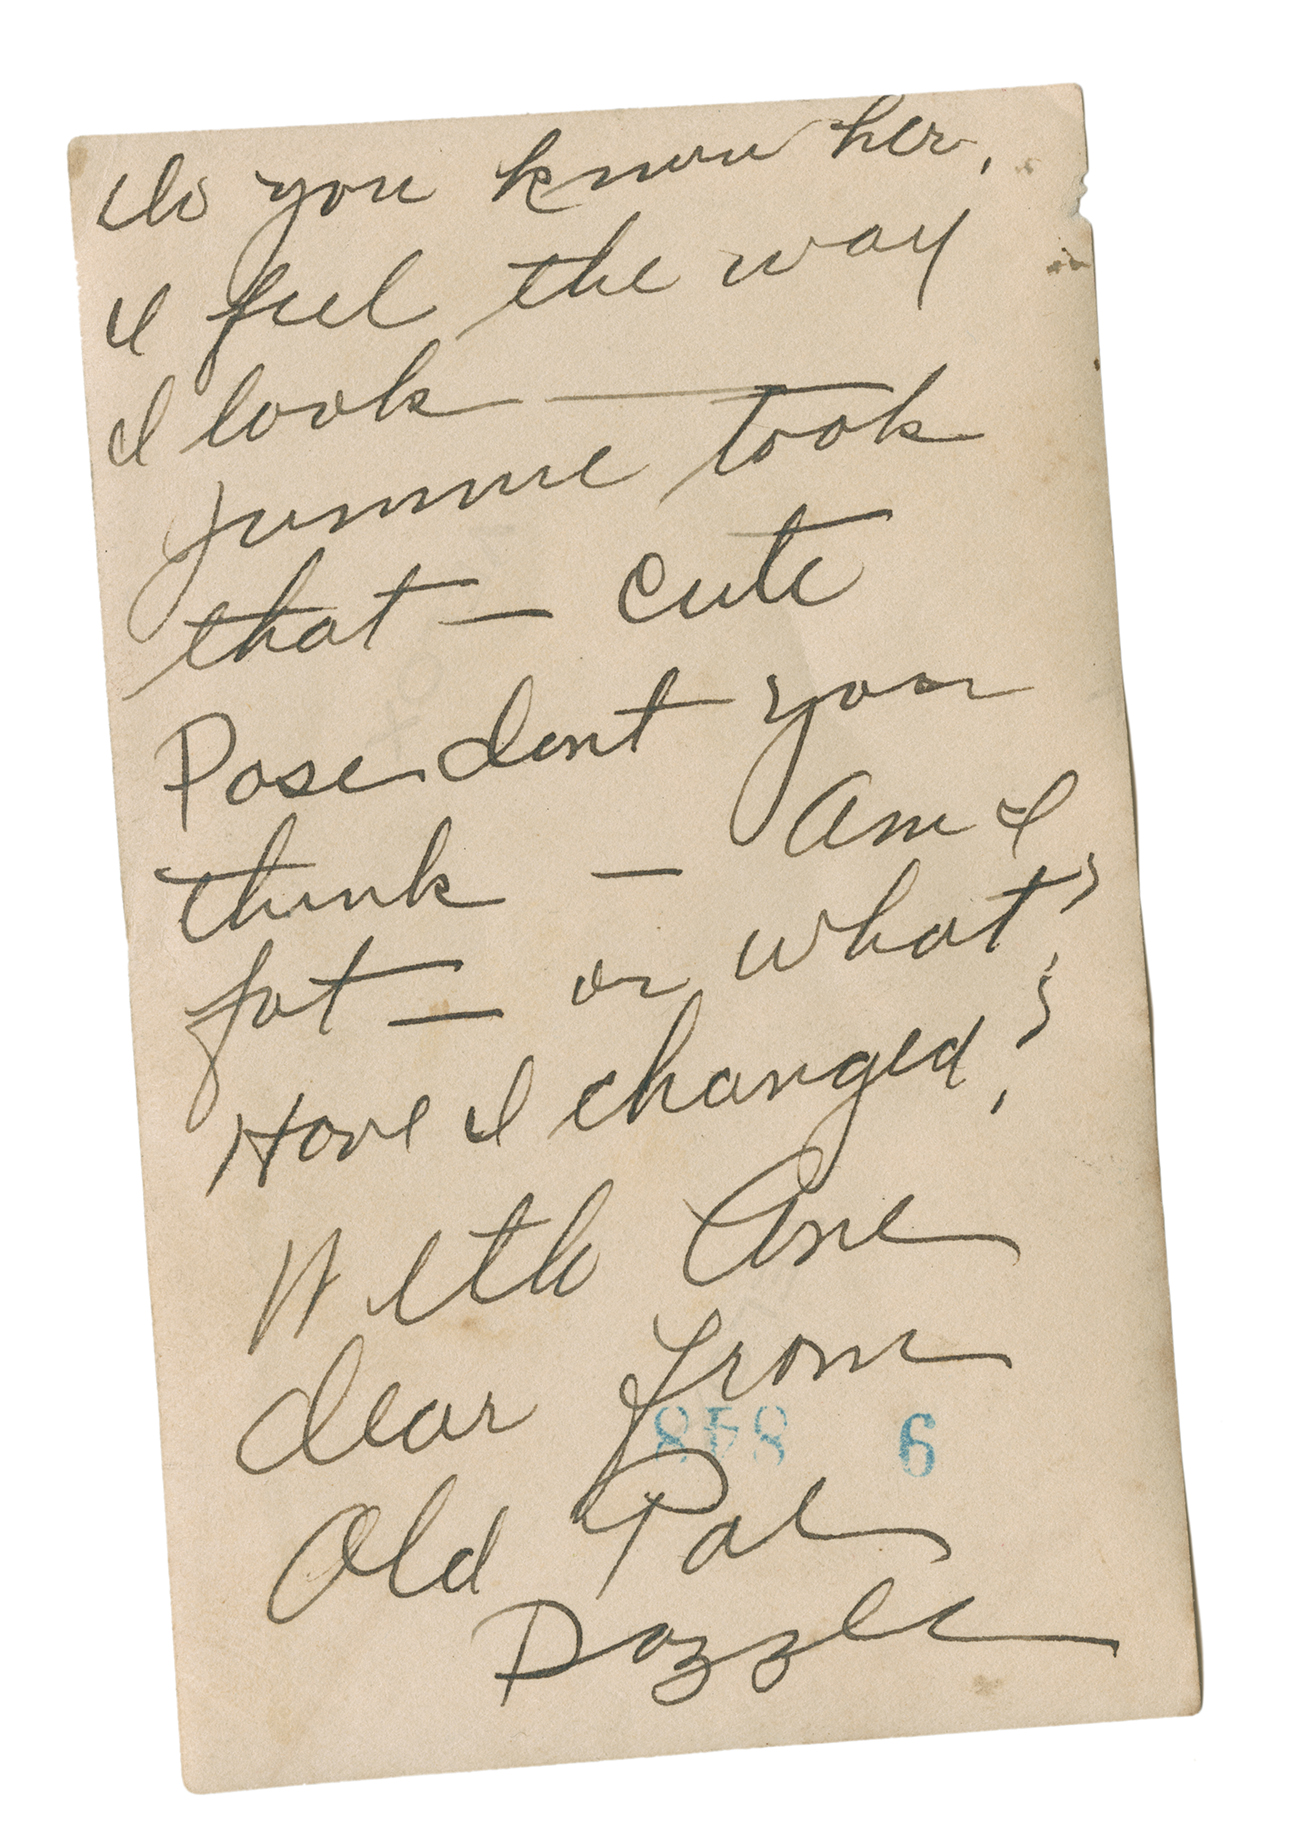 Do you know her.
I feel the way
I look —
Jimmie took
that — cute
Pose dont you
think — Am I
fat — or what?
Have I changed?
With Love
dear from
848 6
Old Pal
Dazzle